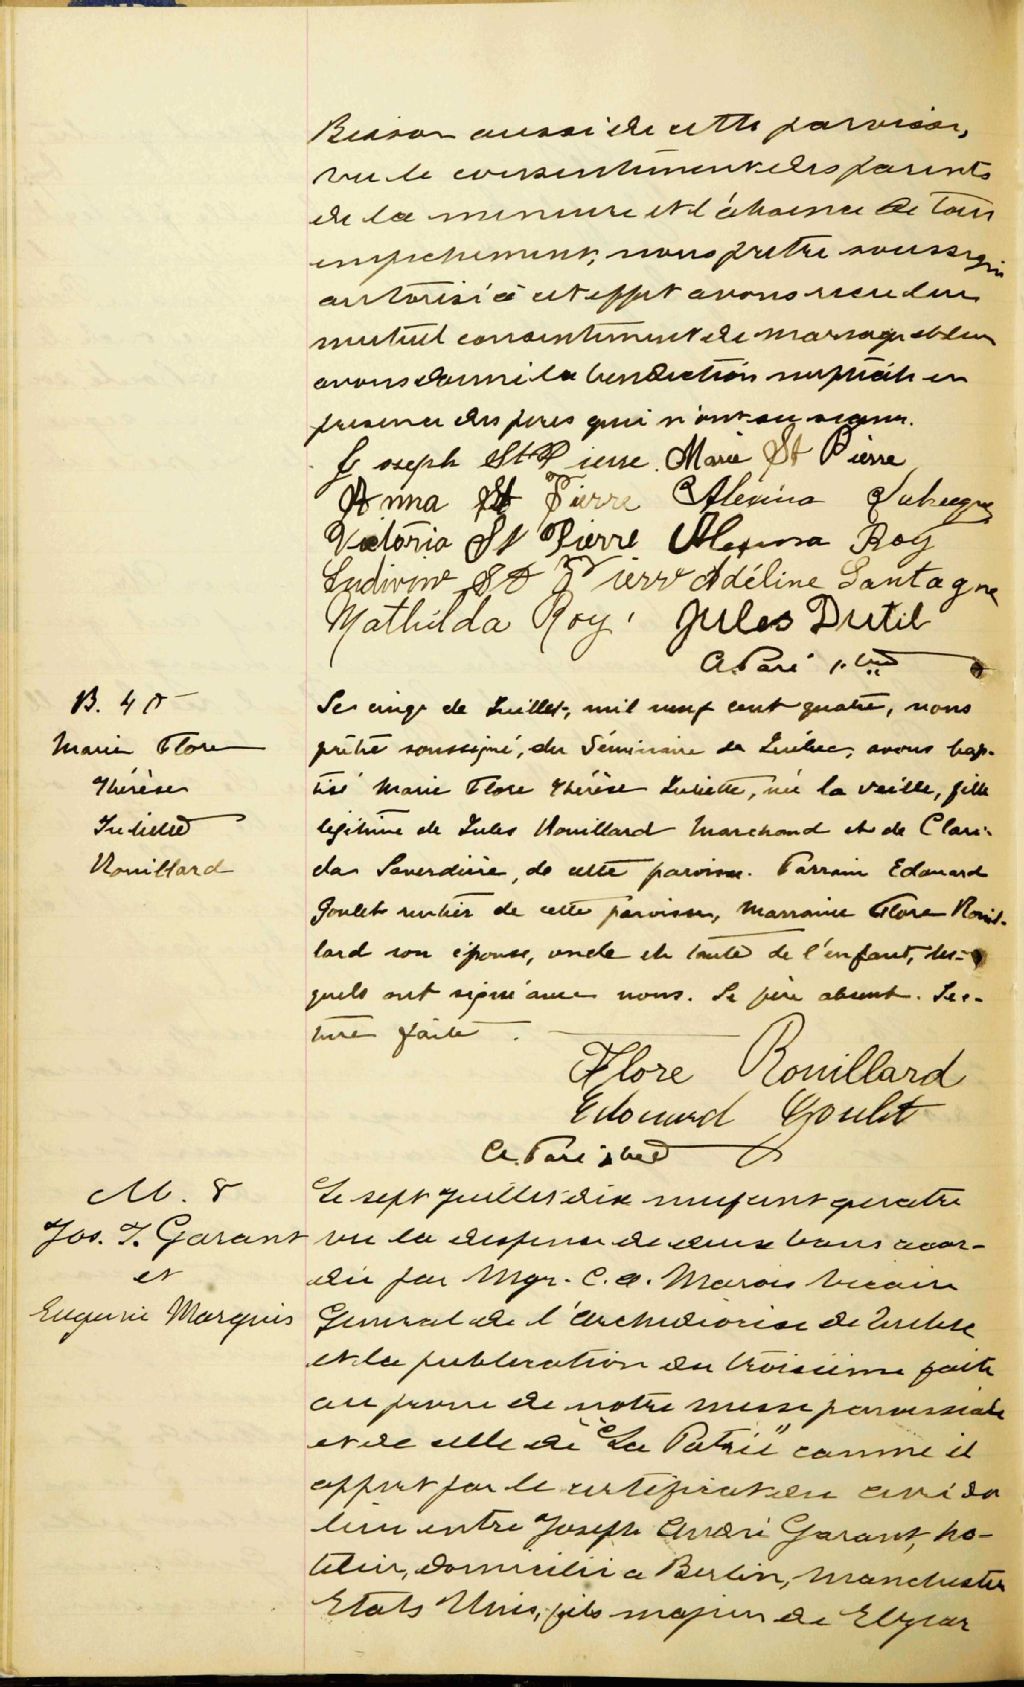 Besson aussi de cette paroisse,
vu le consentement des parents
de la mineure et l'absence de tout
empêchement, nous prêtre soussigné
autorisé à cet effet avons reçu leur
mutuel consentement de mariage et leur
avons donné la bénédiction nuptiale en
présence des pères qui n'ont su signer.
Joseph St Pierre. Marie St Pierre
Anna St Pierre Alexina
Victoria St Pierre Alexina Roy
Ludivine St Pierre Adéline Gantagne
Mathilda Roy, Jules Dutil
A. Paré ptre
B. 45
Marie Flore
Thérèse
Juliette
Rouillard
Le cinq de Juillet, mil neuf cent quatre, nous
prêtre soussigné, du Séminaire de Québec, avons bap-
tisé Marie Flore Thérèse Juliette, née la veille, fille
légitime de Jules Rouillard Marchand et de Clari-
da Laverdière, de cette paroisse. Parrain Edouard
Goulet rentier de cette paroisse, Marraine Flore Rouil-
lard son épouse, oncle et tante de l'enfant, les-
quels ont signé avec nous. Le père absent. Lec-
ture faite.
Flore Rouillard
Edouard Goulet
A. Paré ptre
M. 8
Jos. T. Garant
et
Eugénie Marquis
Le sept Juillet dix neuf cent quatre
vu la dispense de deux bans accor-
dée par Mgr. C. A. Marois Vicaire
Général de l'Archidiocèse de Québec
et la publication du troisième faite
au prône de notre messe paroissiale
et de celle de "La Patrie" comme il
appert par le certificat du curé du
lieu entre Joseph André Garant, hô-
telier, domicilié à Berlin, Manchester
Etats Unis, fils majeur de Elzear